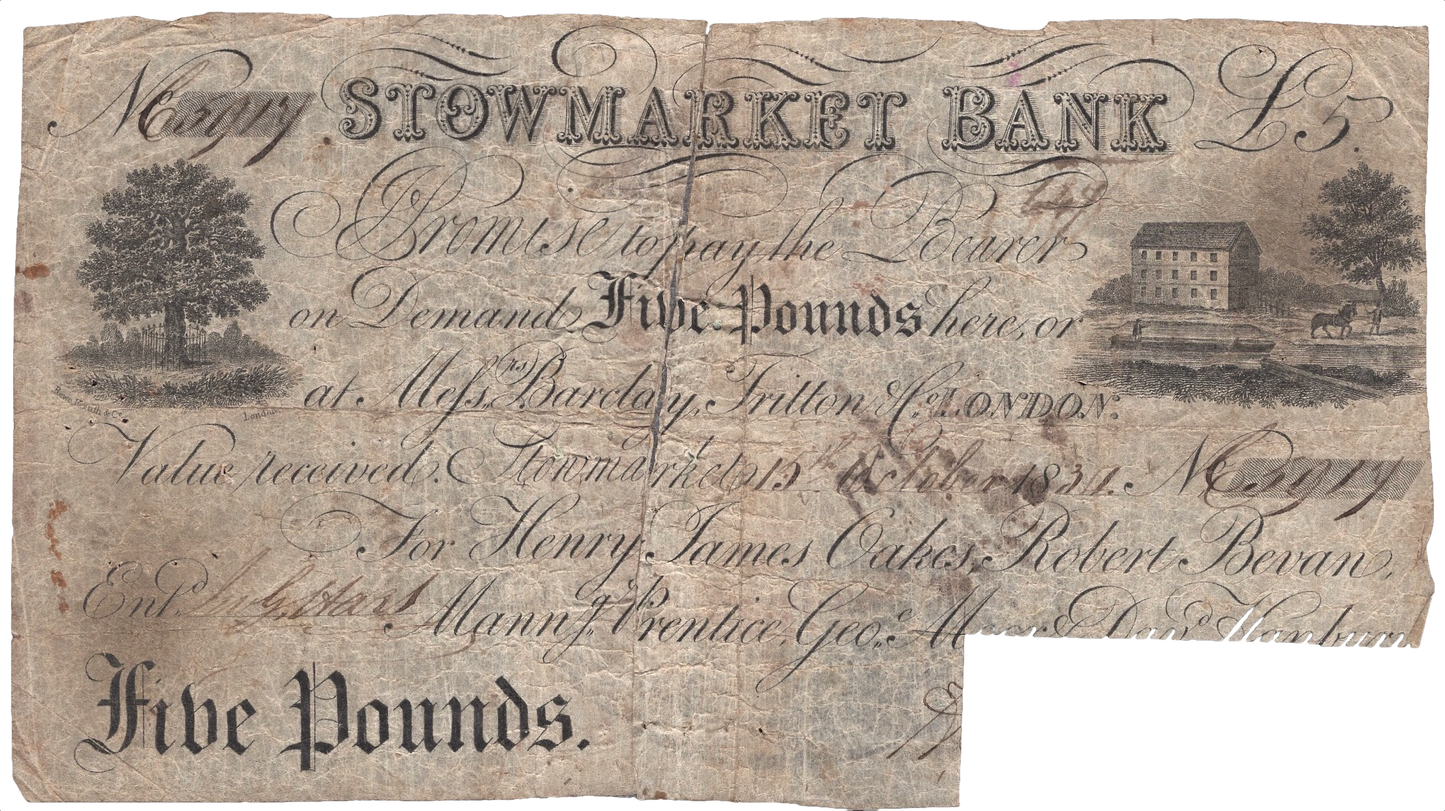 No STOWMARKET BANK £5.
I Promise to pay the Bearer
on Demand Five Pounds here, or
at Messrs. Barclay, Tritton & Co. LONDON.
London
Value received. Stowmarket 15th October 1831. No
For Henry James Oakes, Robert Bevan,
Entd. Mann g.t Prentice, Geo.e & Davd. Hanbury
Five Pounds.